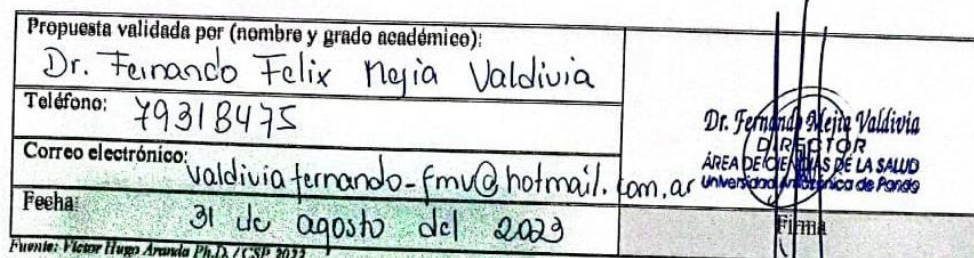 Propuesta validada por (nombre y grado académico):
Dr. Fernando Felix Mejia Valdivia
Teléfono: 79318475
Correo electrónico: valdiviafernando-fmv@hotmail.com.ar
Fecha: 31 de agosto del 2023
Dr. Fernando Mejia Valdivia
DIRECTOR
ÁREA DE CIENCIAS DE LA SALUD
Universidad Amazónica de Pando
Firma
Fuente: Victor Hugo Aranda Ph.D. / CSP 2022